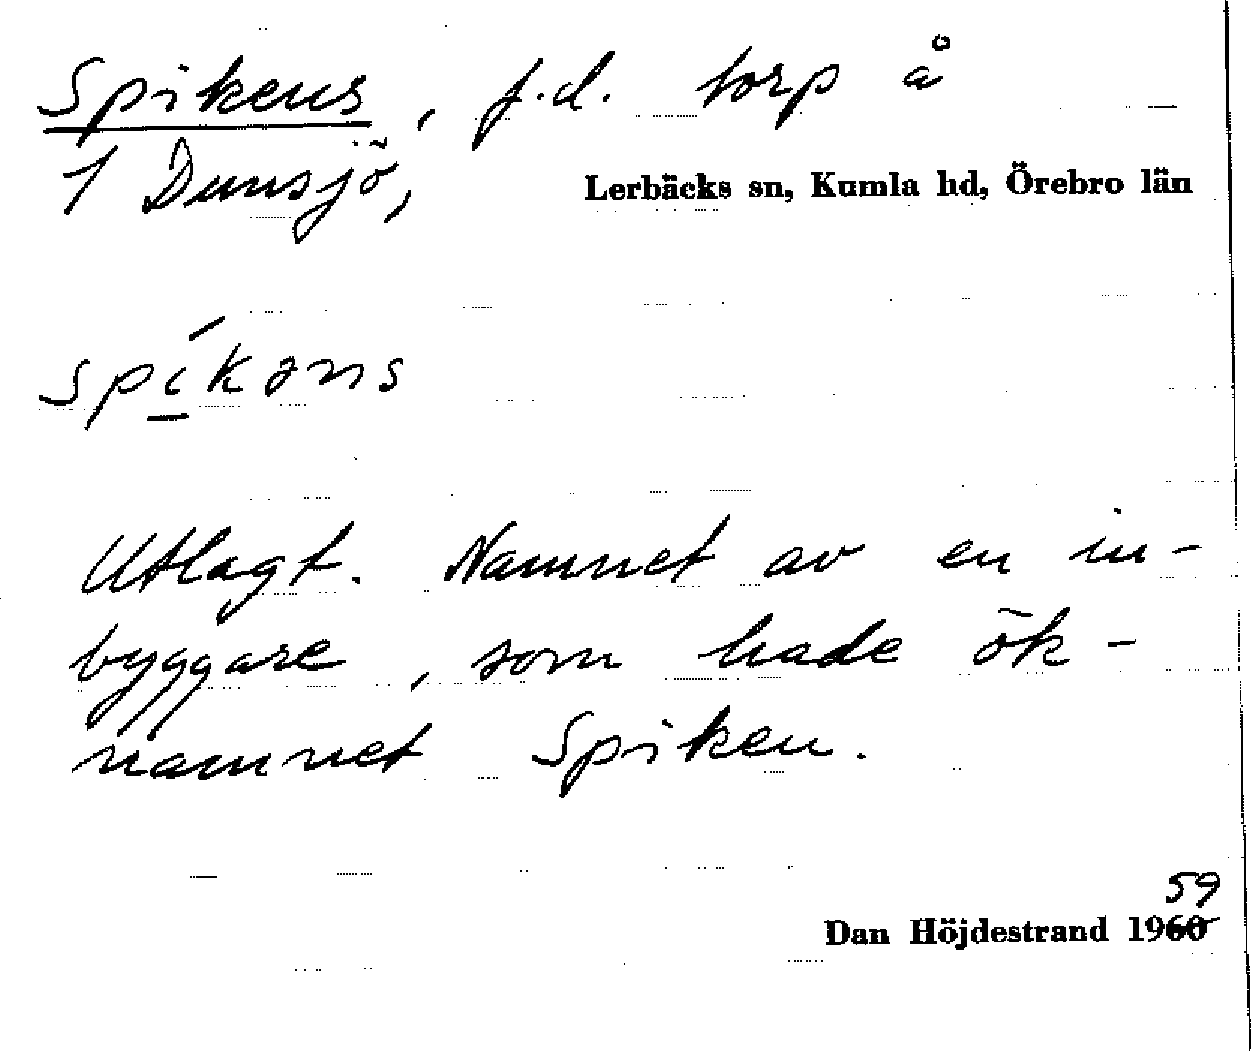 Spikens, f.d. torp å
1 Dunsjö,
Lerbäcks sn, Kumla hd, Örebro län
spíkəns
Utlagt. Namnet av en in-
byggare, som hade ök-
namnet Spiken.
59
Dan Höjdestrand 1960